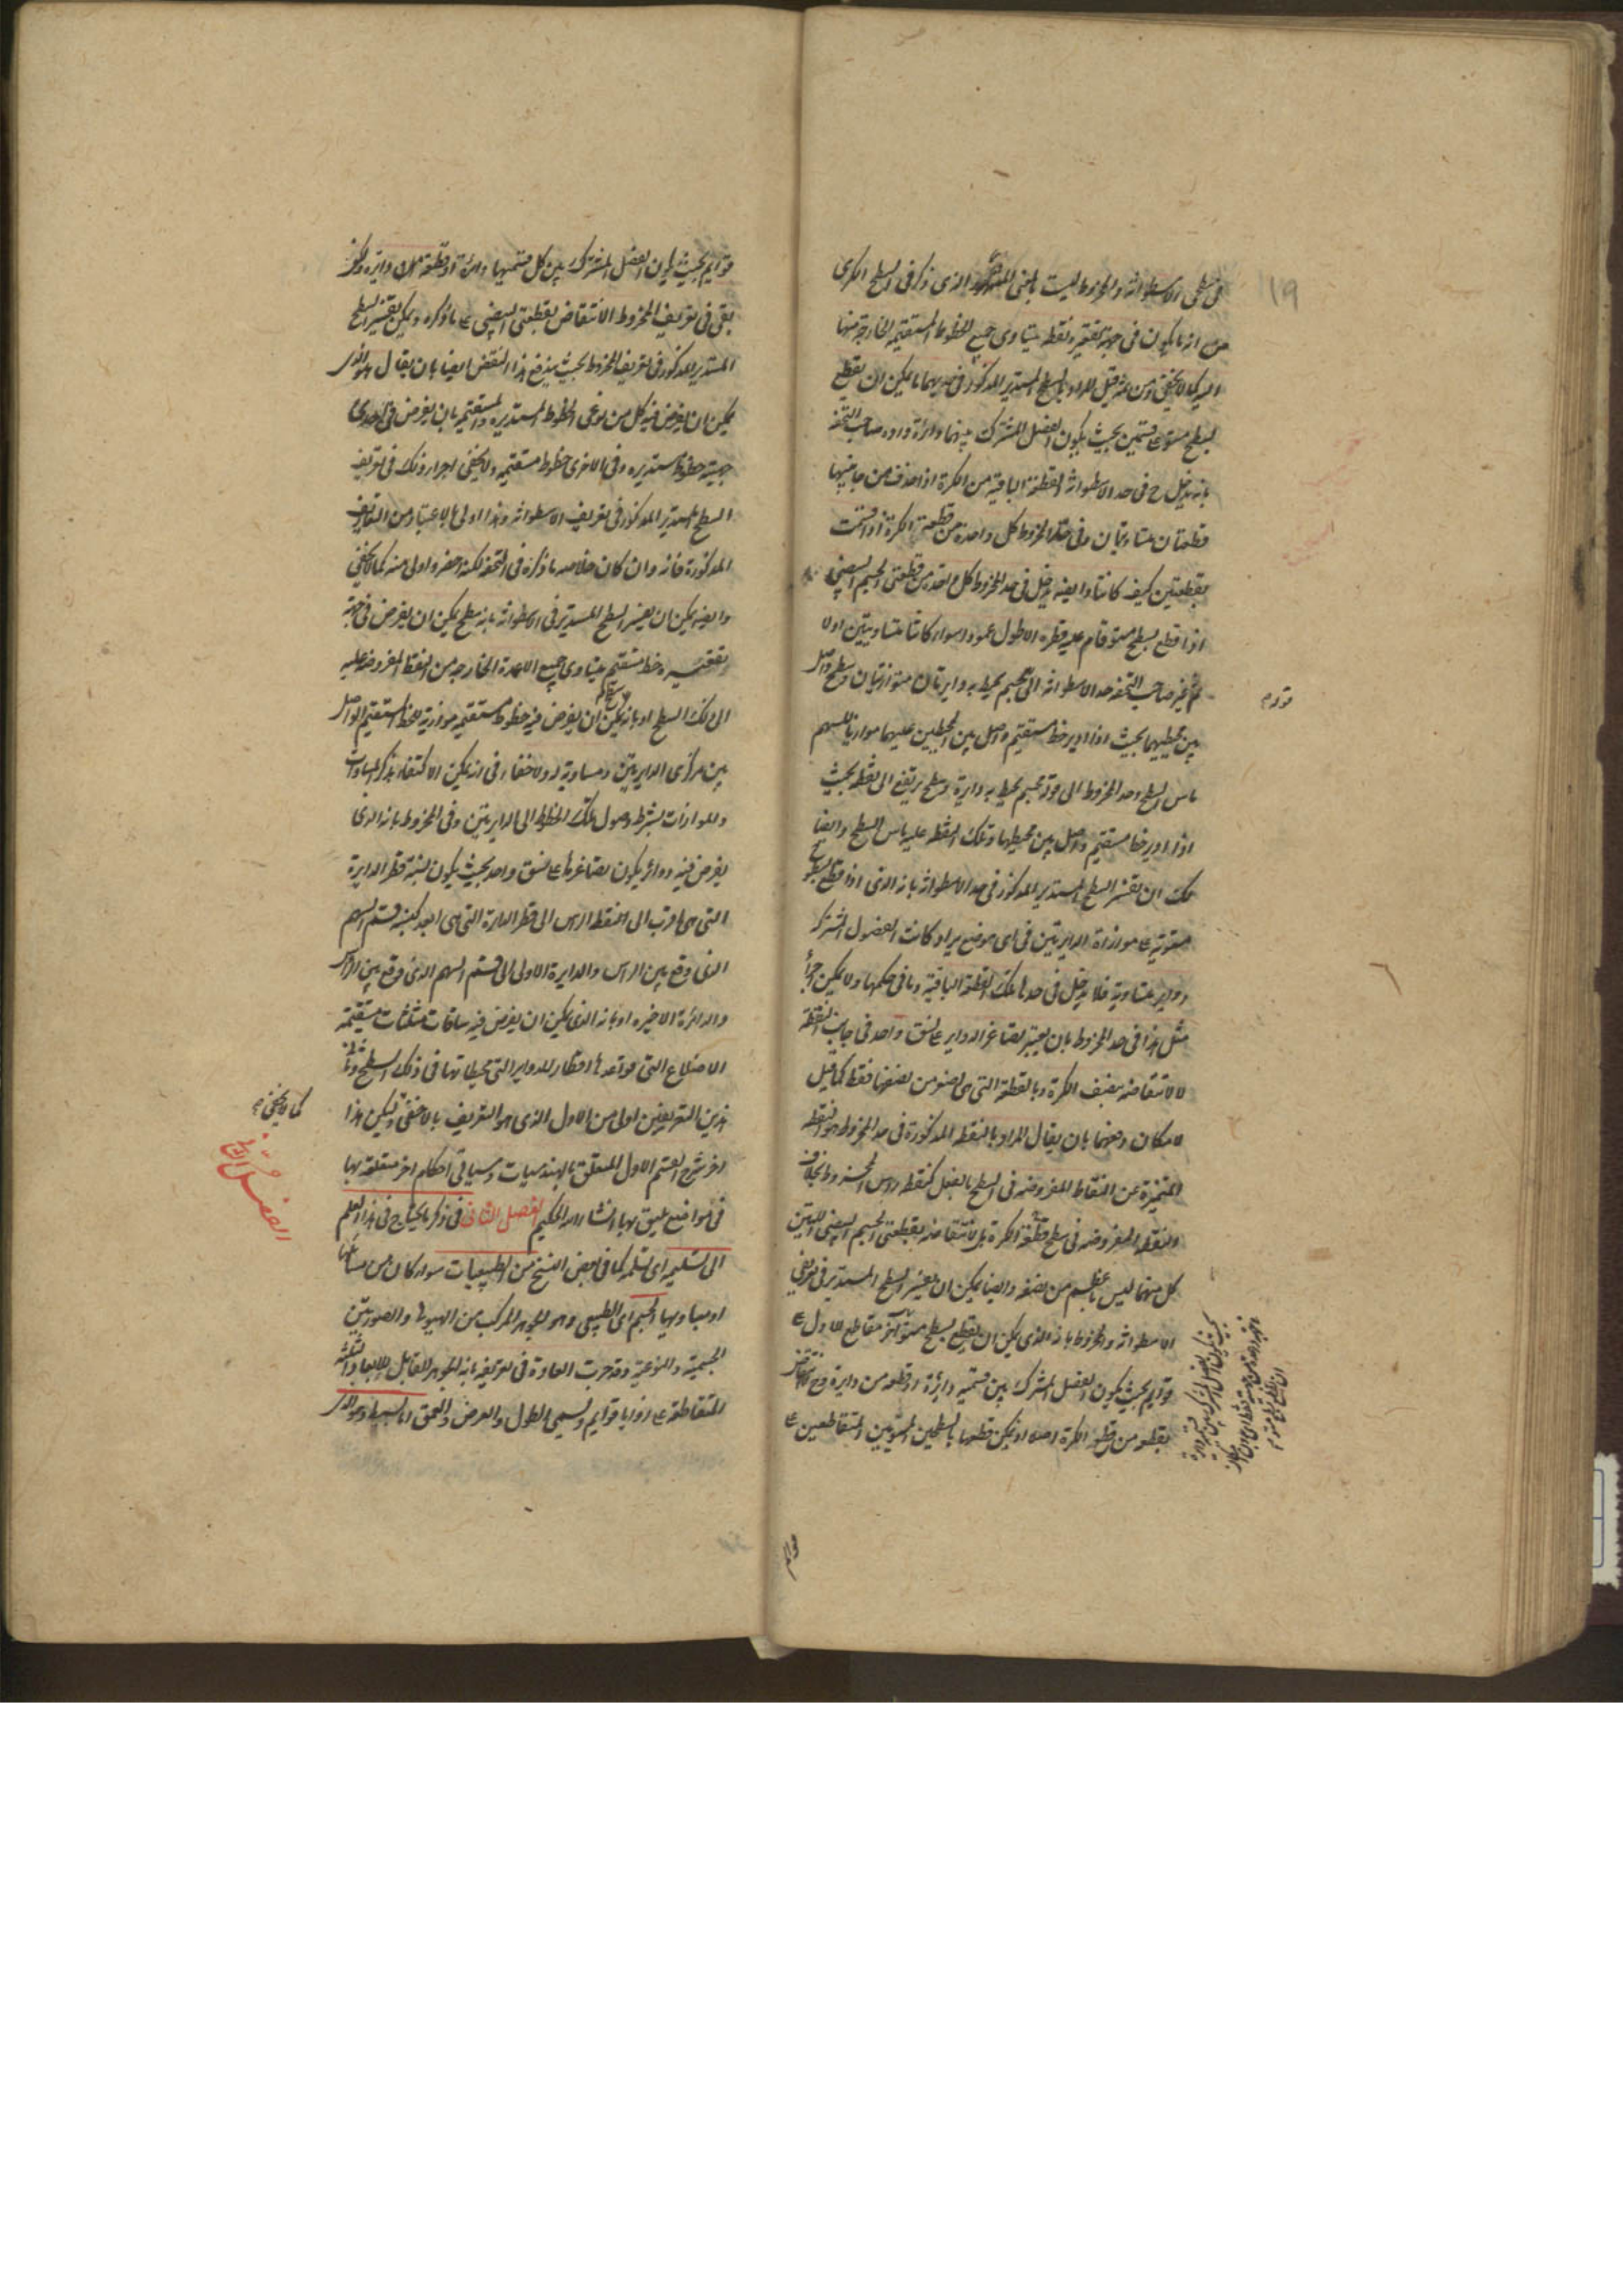 فى سطحى الاسطوانة والمخروط ليست بالمعنى المشهور الذى ذكر فى السطح الكرى
من انه ما يكون فى جهة تقعيره نقطة يتساوى جميع الخطوط المستقيمة الخارجة منها
اليه كما لا يخفى ومن ثمة قيل المراد بالسطح المستدير المذكور فى حديهما ما يمكن ان يقطع
بسطح مستو على قسمين بحيث يكون الفصل المشترك بينهما دائرة واورد صاحب التحفة
بانه يدخل ح فى حد الاسطوانة القطعة الباقية من الكرة اذا حذف من جانبيها
قطعتان متساويتان وفى حد المخروط كل واحدة من قطعتى الكرة اذا قسمت
بقطعتين كيف كانتا وايضا يدخل فى حد المخروط كل واحدة من قطعتى الجسم البيضى
اذا قطع بسطح مستو قام عليه قطره الاطول عمودا سواء كانتا متساويتين اولا
ثم غير صاحب التحفة حد الاسطوانة الى مجسم يحيط به دايرتان متوازيتان وسطح واصل
بين محيطيهما بحيث اذا ادير خط مستقيم واصل بين المحيطين عليهما موازيا للسهم
ماس السطح وحد المخروط الى قوله مجسم يحيط به دايرة وسطح يرتفع الى نقطة بحيث
اذا ادير خط مستقيم واصل بين محيطها وتلك النقطة عليه ماس السطح وايضا
لك ان تفسر السطح المستدير المذكور فى حد الاسطوانة بانه الذى اذا قطع بسطوح
مستوية على موازاة الدايرتين فى اى موضع يراد كانت الفصول المشتركة
دواير متساوية فلا يدخل فى حدها تلك القطعة الباقية وما فى حكمها ولا يمكن اجراء
مثل هذا فى حد المخروط بان يعتبر تصاغر الدواير على نسق واحد فى جانب النقطة
لانتقاضه بنصف الكرة وبالقطعة التى هى اصغر من نصفها فقط كما قيل
لامكان دفعهما بان يقال المراد بالنقطة المذكورة فى حد المخروط هو النقطة
المتميزة عن النقاط المفروضة فى السطح بالفعل كنقطة راس المخروط بخلاف
النقطة المفروضة فى سطح قطعة الكرة بل لانتقاضه بقطعتى الجسم البيضى اللتين
كل منهما ليس باعظم من نصفه وايضا يمكن ان يفسر السطح المستدير فى تعريفى
الاسطوانة والمخروط بانه الذى يمكن ان يقطع بسطح مستو آخر مقاطع للاول على
قوايم بحيث يكون الفصل المشترك بين قسميه دايرة او قطعة من دايرة وح
بقطع من قطع الكرة اصلا اذ يمكن قطعها بالسطحين المستويين المتقاطعين على
قوايم بحيث يكون الفصل المشترك بين كل قسميها دائرة او قطعة من دايرة ولكن
بقى فى تعريف المخروط الانتقاض بقطعتى البيضى على ما ذكره ويمكن تفسير السطح
المستدير المذكور فى تعريف المخروط بحيث يندفع هذا النقض ايضا بان يقال هو الذى
يمكن ان يفرض فيه كل من نوعى الخطوط المستديرة والمستقيمة بان يفرض فى احدى
جهتيه خطوط مستديرة وفى الاخرى خطوط مستقيمة ولا يخفى اجراء ذلك فى تعريف
السطح المستدير المذكور فى تعريف الاسطوانة وهذا اولى بالاعتبار من التعاريف
المذكورة فانه وان كان خلاصة ما ذكره فى التحفة لكنه اخصر واولى منه كما لا يخفى
وايضا يمكن ان يفسر السطح المستدير فى الاسطوانة بانه سطح يمكن ان يفرض فى جهة
تقعيره خط مستقيم يتساوى جميع الاعمدة الخارجة من النقط المفروضة عليه
الى ذلك السطح او بانه يمكن ان يفرض فيه خطوط مستقيمة موازية للخط المستقيم الواصل
بين مركزى الدايرتين ومساوية له ولا خفاء فى انه يمكن الاكتفاء بذكر المساوات
والموازات بشرط وصول تلك الخطوط الى الدايرتين وفى المخروط بانه الذى
يفرض فيه دوائر يكون تصاغرها على نسق واحد بحيث يكون نسبة قطر الدايرة
التى هى اقرب الى النقطة الراس الى قطر الدايرة التى هى ابعد كنسبة قسم السهم
الذى وقع بين الراس والدايرة الاولى الى قسم السهم الذى وقع بين الراس
والدائرة الاخيرة او بانه الذى يمكن ان يفرض فيه ساقات مثلثات مستقيمة
الاضلاع التى قواعدها اقطار للدواير التى محيطاتها فى ذلك السطح
هذين التعريفين اولى من الاول الذى هو التعريف بالاخفى وليكن هذا
اخر شرح القسم الاول المتعلق بالهندسيات وسياتى احكام اخر متعلقة بها
فى مواضع يليق بها انشاء الله الحكيم الفصل الثانى فى ذكر ما يحتاج فى هذا العلم
الى تسليمه اى تسلمه كما فى بعض النسخ من الطبيعيات سواء كان من مسائلها
او مباديها الجسم اى الطبيعى وهو الجوهر المركب من الهيولى والصورتين
الجسمية والنوعية وقد جرت العادة فى تعريفه بانه الجوهر القابل للابعاد الثلثة
المتقاطعة على زوايا قوايم ويسمى الطول والعرض والعمق اما بسيط وهو الذى
كما لا يخفى
١١٩